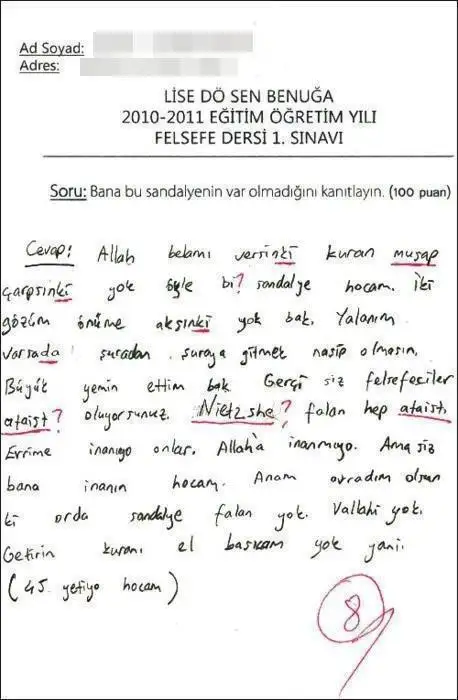 Ad Soyad:
Adres:
LİSE DÖ SEN BENUĞA
2010-2011 EĞİTİM ÖĞRETİM YILI
FELSEFE DERSİ 1. SINAVI
Soru: Bana bu sandalyenin var olmadığını kanıtlayın. (100 puan)
Cevap: Allah belamı versinki kuran muşap
çarpsınki yok öyle bi? sandalye hocam. İki
gözüm önüme aksınki yok bak. Yalanım
varsada şuradan şuraya gitmek nasip olmasın.
Büyük yemin ettim bak. Gerçi siz felsefeciler
ataist? oluyorsunuz. Nietzshe? falan hep ataist.
Evrime inanıyo onlar. Allah'a inanmıyo. Ama siz
bana inanın hocam. Anam avradım olsun
ki orda sandalye falan yok. Vallahi yok.
Getirin kuranı el basıcam yok yani.
(45 yetiyo hocam)
8